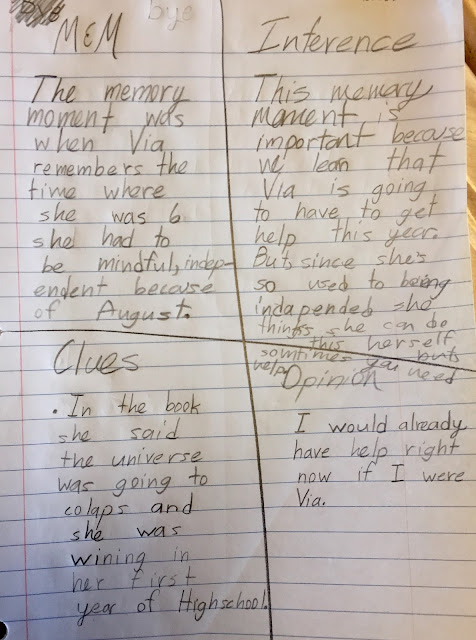 bye
M&M
The memory
moment was
when Via
remembers the
time where
she was 6
she had to
be mindful, indep-
endent because
of August.
Inference
This memory
moment is
important because
we lean that
Via is going
to have to get
help this year.
But since she's
so used to being
indapended she
things she can do
this herself
somtimes you
help
need
Clues
• In the book
she said
the universe
was going to
colaps and
she was
wining in
her first
year of Highschool.
Opinion
I would already
have help right
now if I were
Via.